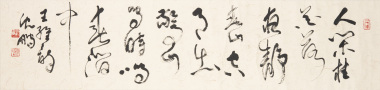 人闲桂
花落
夜静
春山空
月出
惊山
鸟时鸣
春涧
中
王维诗
沈鹏